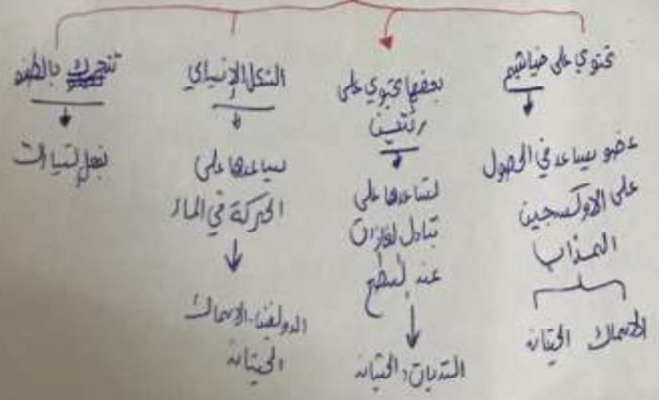 تحتوي على خياشيم
عضو يساعد في الحصول
على الاوكسجين
المذاب
الاسماك الحيتان
بعضها يحتوي على
رئتين
تساعدها على
تبادل لغازات
عند لسطح
الثديات: الحيتان
الشكل الإنسيابي
يساعدها على
الحركة في الماء
الدولفين، الاسماك
الحيتان
تتحرك بالطفو
بفعل لتيارات